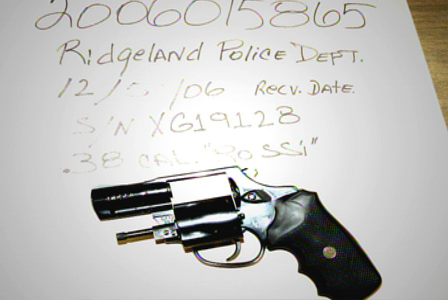 2006015865
Ridgeland Police Dept.
12/ /06 Recv. Date.
S/N XG19128
.38 CAL. "Rossi"